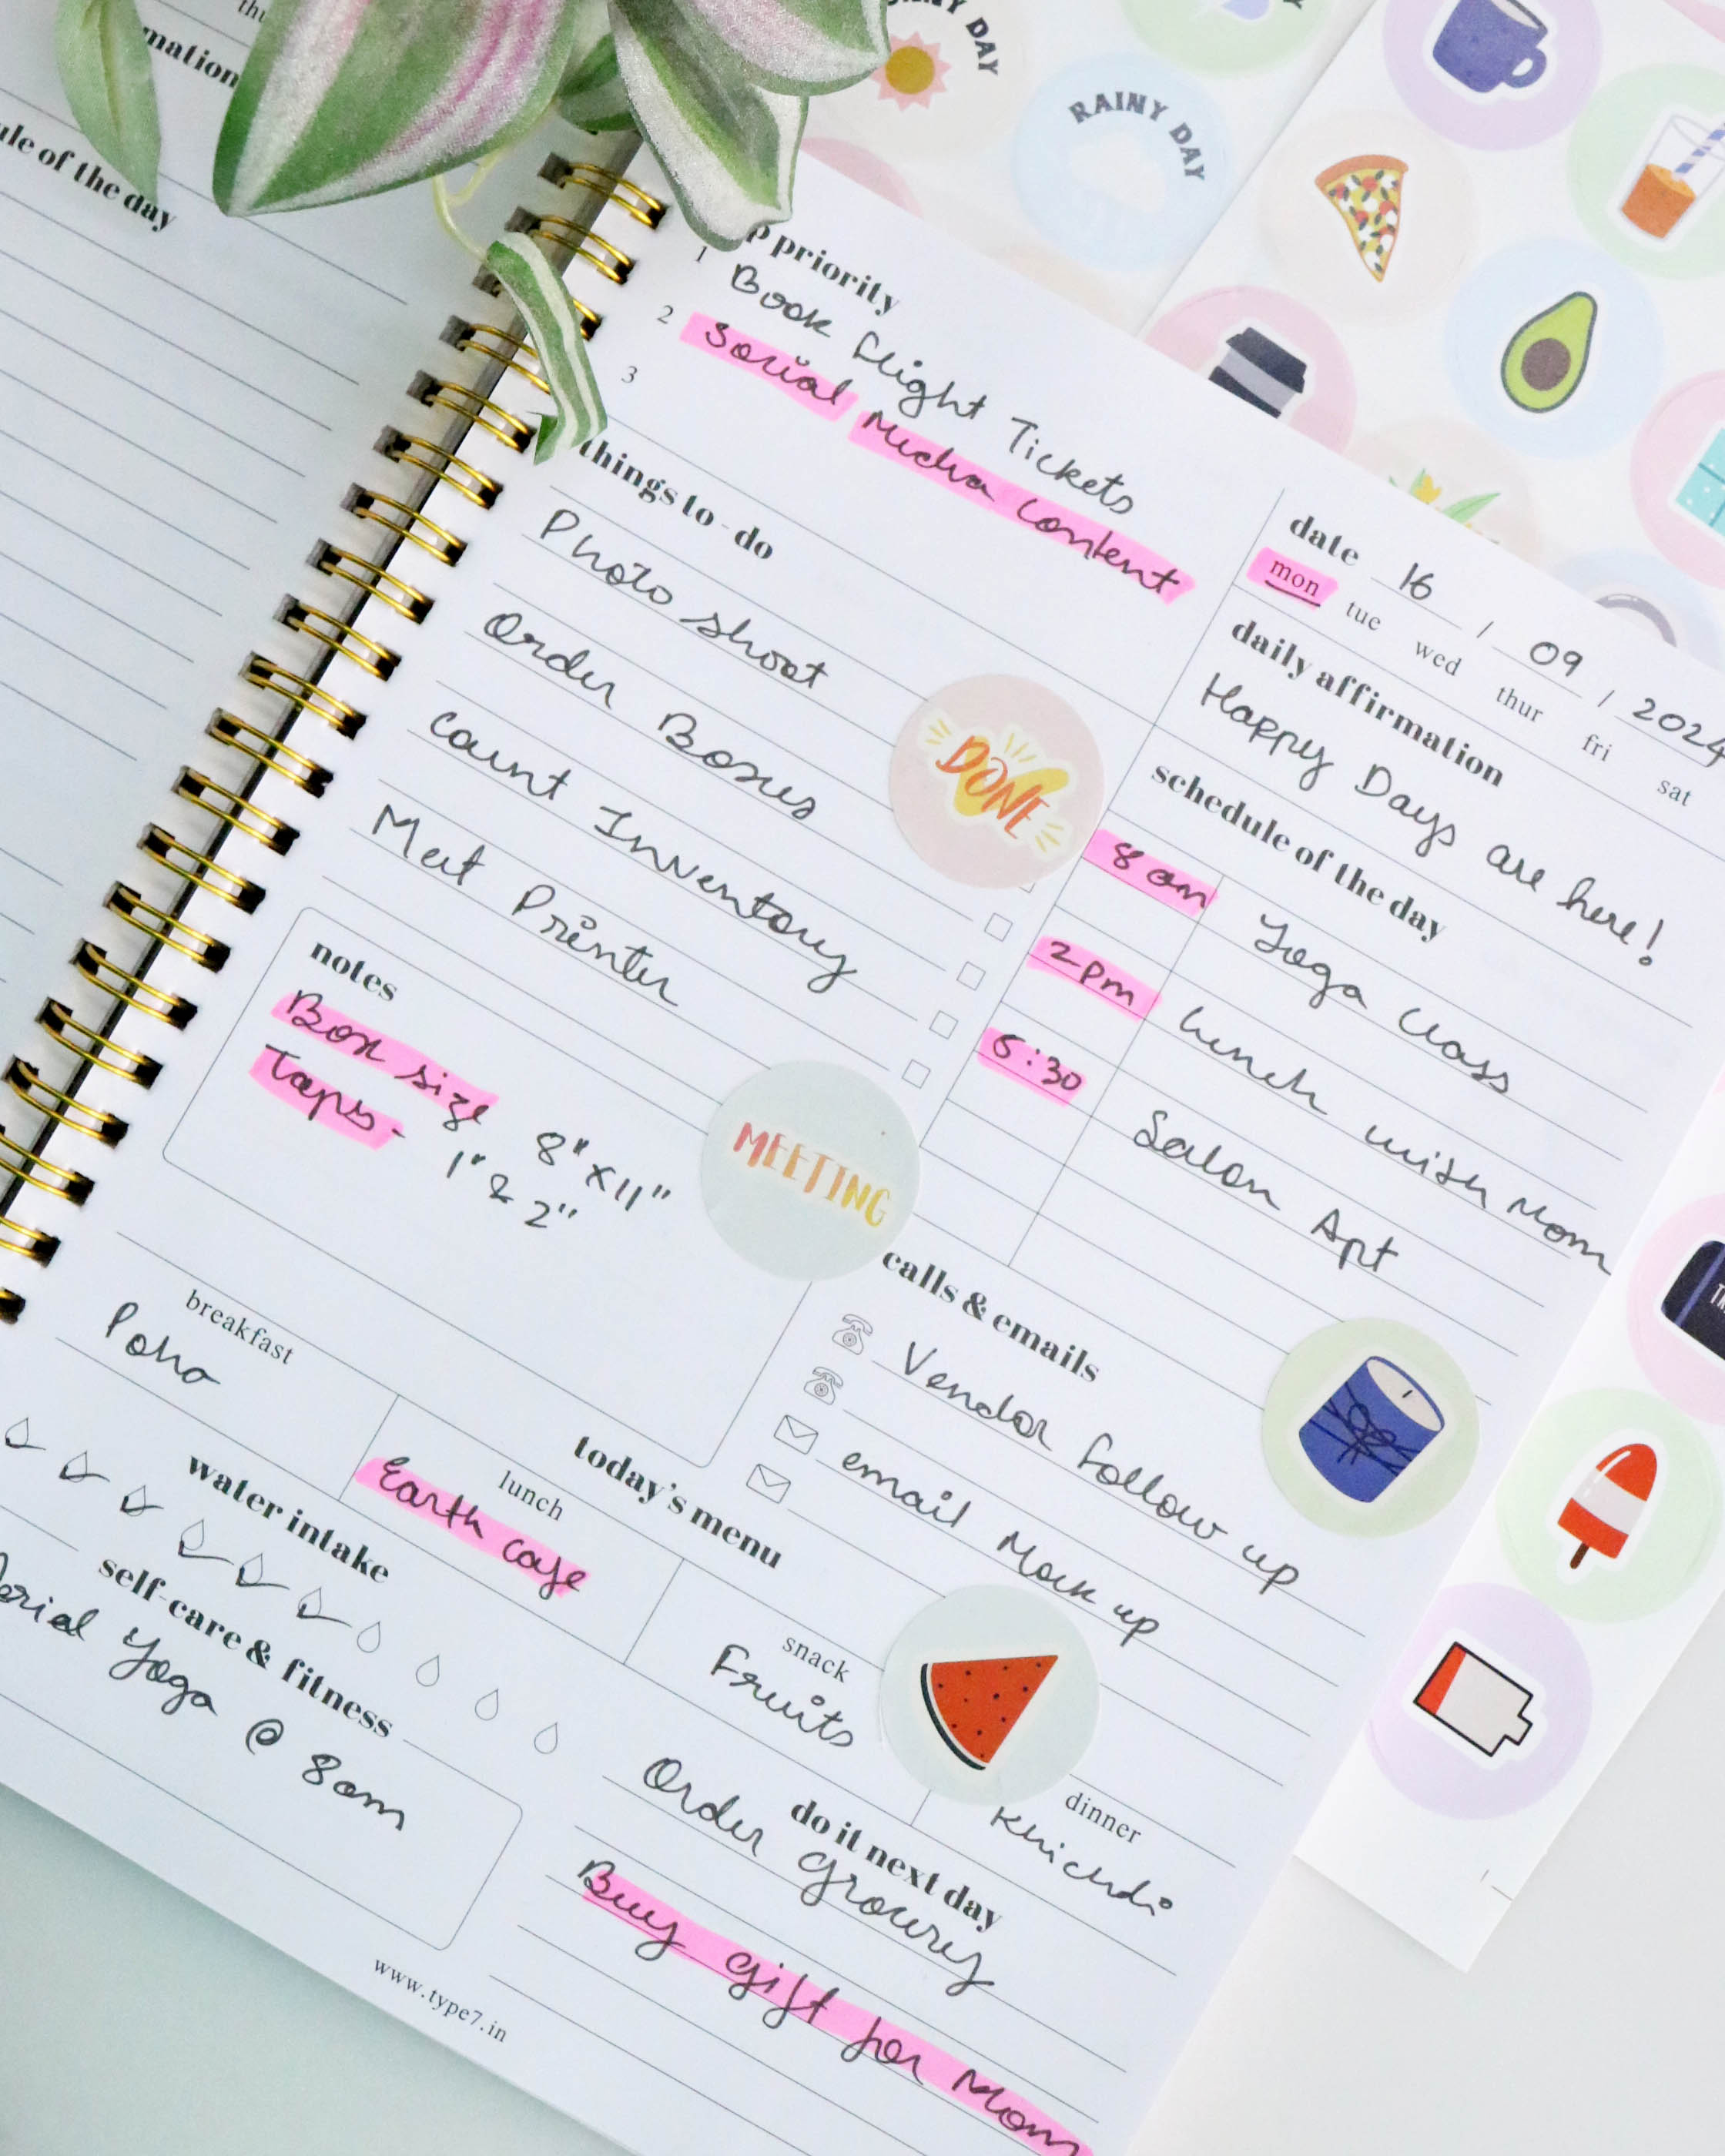 mation
ule of the day
NY DAY
RAINY DAY
p priority
1 Book flight Tickets
2 Social Media Content
3
things to-do
Photo shoot
Order Boxes
Count Inventory
Meet Printer
DONE
date 16 / 09 / 2024
mon tue wed thur fri sat
daily affirmation
Happy Days are here!
schedule of the day
8 am Yoga Class
2 pm Lunch with Mom
5:30 Salon Apt
notes
Box size 8" x 11"
Tapes - 1" & 2"
MEETING
calls & emails
Vendor follow up
email Mock up
today's menu
breakfast
Poha
lunch
Earth Cafe
snack
Fruits
dinner
Khichdi
water intake
self-care & fitness
Aerial Yoga @ 8am
do it next day
Order Grocery
Buy gift for Mom
www.type7.in